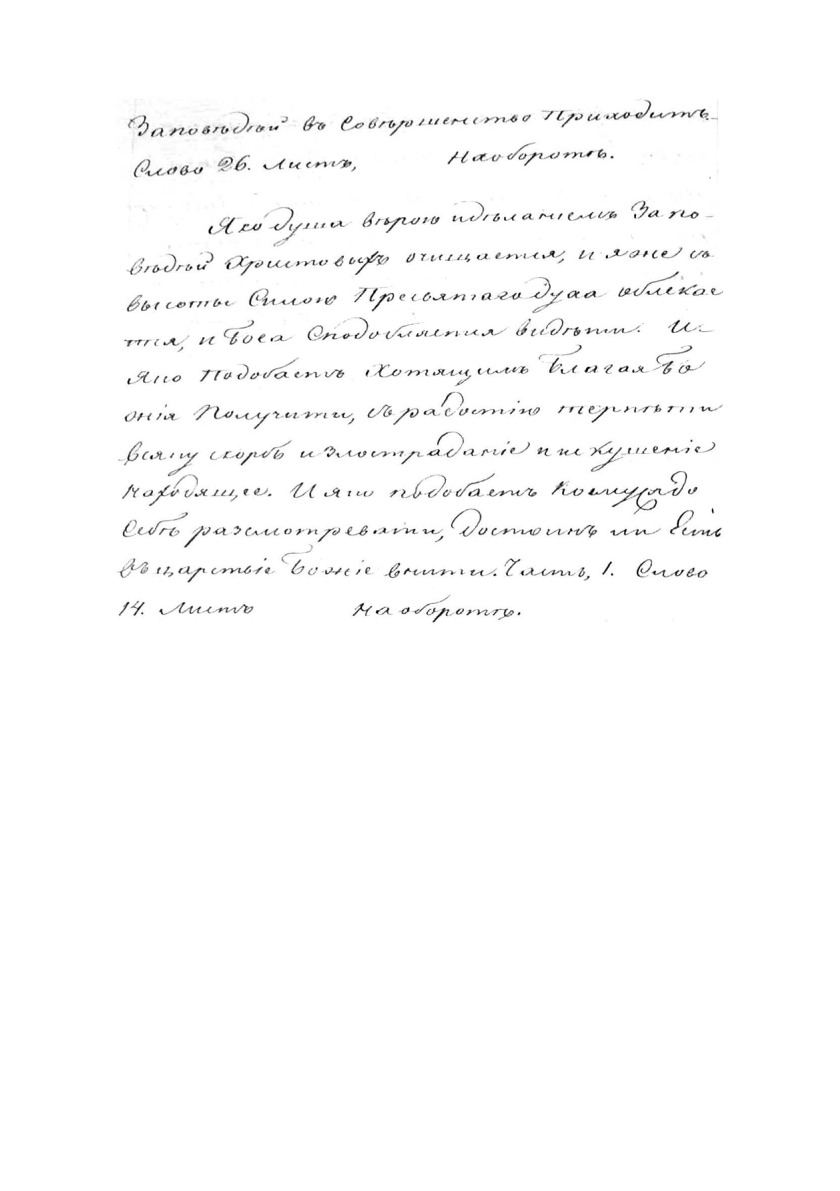 Заповѣдѣй въ Совѣршенство Приходитъ.
Слово 26. Листъ, На оборотѣ.
Яко душа вѣрою и дѣланиемъ Запо-
вѣдѣй Христовыхъ очищается, и яже съ
высоты Силою Пресвятаго духа облекае
тся, и Бога Сподобляется видѣти. И-
Яко Подобаетъ Хотящимъ Благая Бо
жія Получити, съ радостію терпѣти
всяку скорбь и злострадание и искушение
находящее. И яко подобаетъ Комуждо
Себѣ разсмотревати, Достоинъ ли Есть
въ царствіе Божіе внити. Часть, 1. Слово
14. Листъ На оборотѣ.